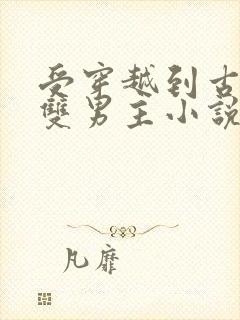 受穿越到古
雙男主小說
凡靡